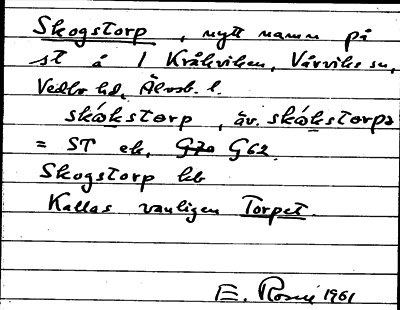 Skogstorp, nytt namn på
st å 1 Kråkviken, Vårviks sn,
Vedbo hd, Älvsb. l.
skɷkstɷrp, äv. skɷkstɷrpə
= ST ek, G70 G62.
Skogstorp kb
Kallas vanligen Torpet.
E. Rosén 1961